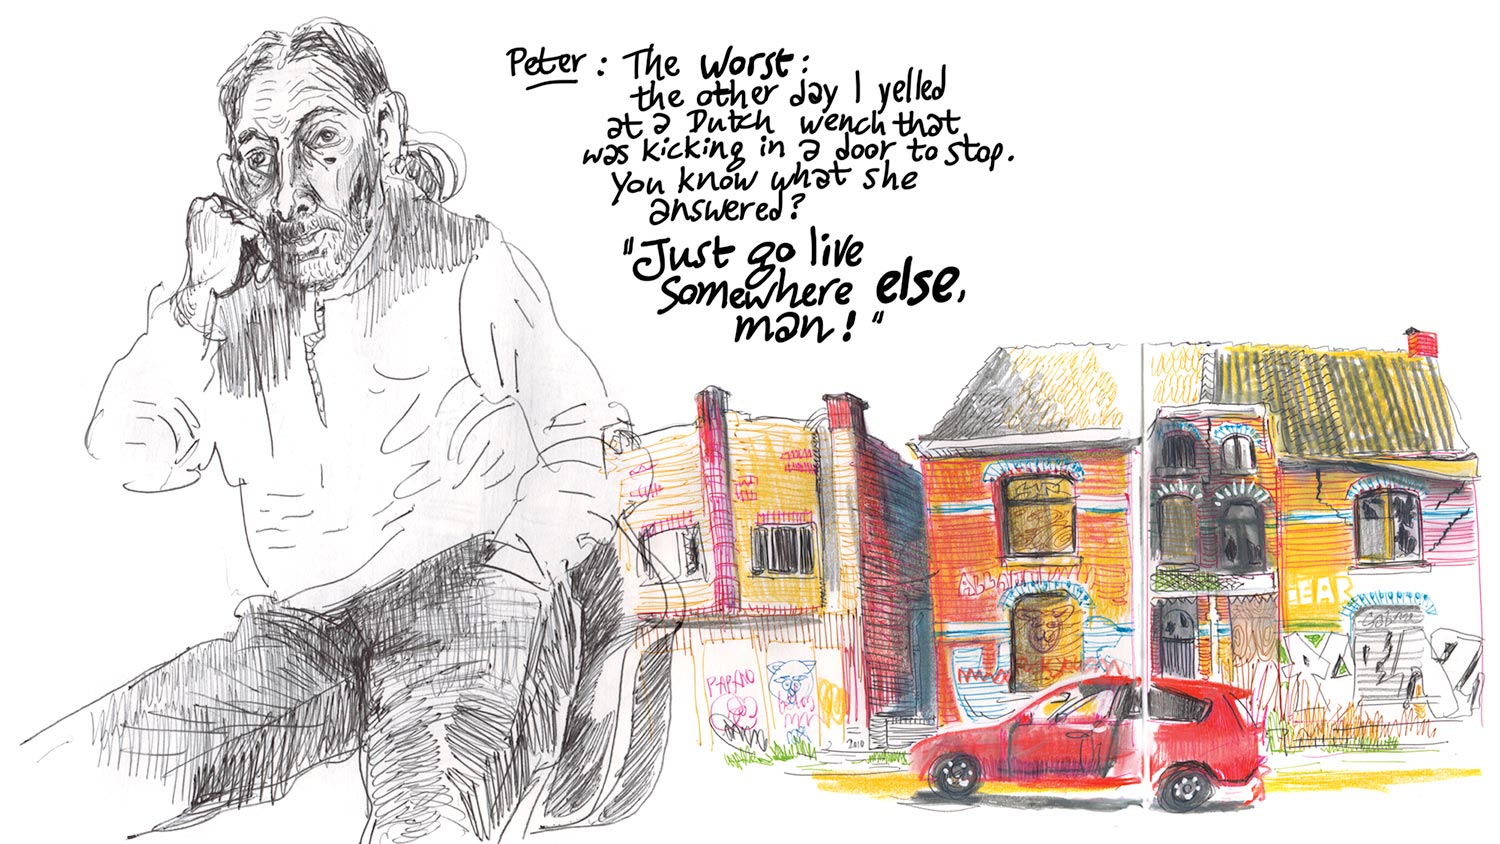 Peter: The worst:
the other day I yelled
at a Dutch wench that
was kicking in a door to stop.
You know what she
answered?
"Just go live
Somewhere else,
man!"
PARANO
2010
EAR